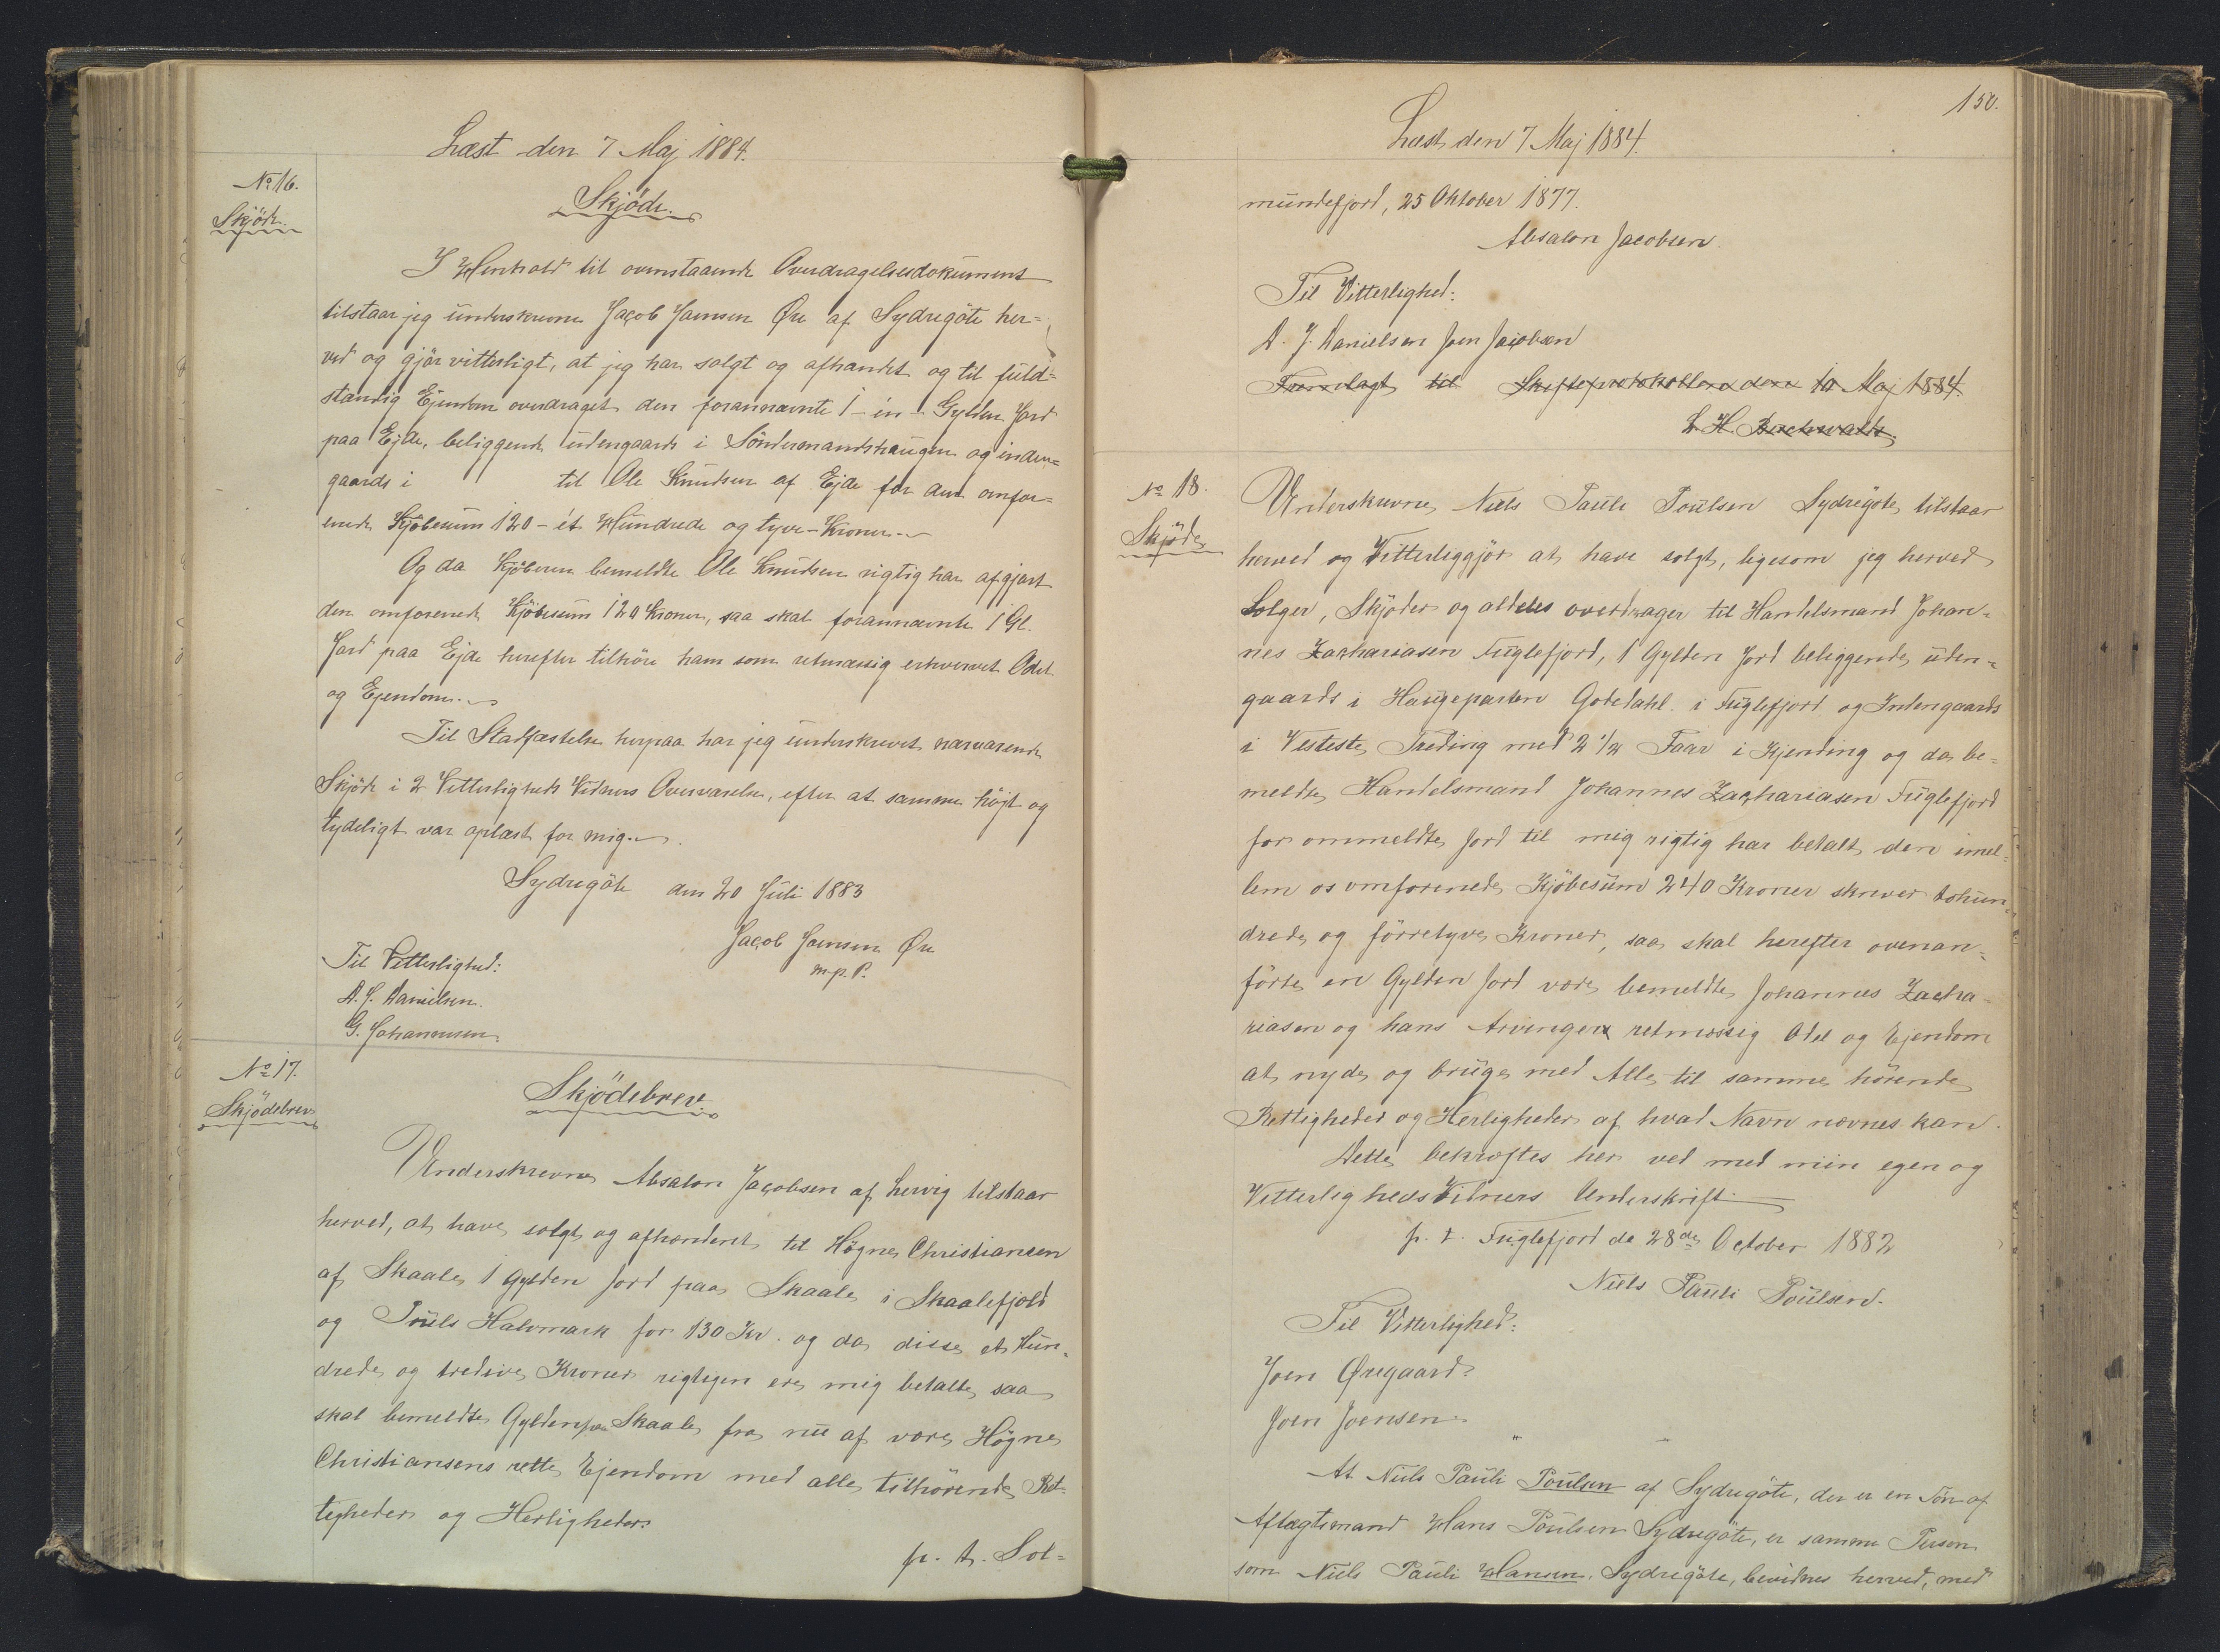 Læst den 7 Maj 1884.
No 16.
Skjöde.
Skjöde.
I Henhold til ovenstaaende Overdragelsesdokument
tilstaar jeg underskrevne Jacob Joensen Øre af Sydregöte her=
ved og gjör vitterligt, at jeg har solgt og afhændet og til fuld=
stændig Ejendom overdraget den forannævnte 1 - én - Gylden Jord
paa Ejde, beliggende udengaards i Söndermandshaugen og inden=
gaards i til Ole Knudsen af Ejde for den omfor=
enede Kjöbesum 120 - ét Hundrede og tyve - Kroner.
Og da Kjöberen bemeldte Ole Knudsen rigtig har afgjort
den omforenede Kjöbesum 120 Kroner, saa skal forannævnte 1 Gl.
Jord paa Ejde herefter tilhöre ham som retmæssig erhvervet Odel
og Ejendom.
Til Stadfæstelse herpaa har jeg underskrevet nærværende
Skjöde i 2 Vitterligheds Vidners Overværelse, efter at samme höjt og
tydeligt var oplæst for mig.
Sydregöte den 20 Juli 1883
Jacob Joensen Øre
m. p. P.
Til Vitterlighed:
D. J. Danielsen.
G. Johannesen
No 17.
Skjödebrev
Skjödebrev.
Underskrevne Absalon Jacobsen af Lervig tilstaar
herved, at have solgt og afhænderet til Högne Christiansen
af Skaale 1 Gylden Jord paa Skaale i Skaalefjold
og Pouls Halvmark for 130 Kr. og da disse et Hun=
drede og tredive Kroner rigtigen ere mig betalte, saa
skal bemeldte Gylden paa Skaale fra nu af være Högne
Christiansens rette Ejendom med alle tilhörende Ret=
tigheder og Herligheder.
p. t. Sol=
150.
Læst den 7 Maj 1884.
mundefjord, 25 Oktober 1877.
Absalon Jacobsen.
Til Vitterlighed:
D. J. Danielsen Joen Jacobsen
Fremlagt til Skifteprotokollen den 10 Maj 1884.
L. H. Buchwaldt.
No 18.
Skjöde
Underskrevne Niels Pauli Poulsen Sydregöte tilstaar
herved og Vitterliggjör at have solgt, ligesom jeg herved
Sölger, Skjöder og aldeles overdrager til Handelsmand Johan=
nes Zachariasen Fuglefjord, 1 Gylden Jord beliggende uden=
gaards i Haugeparten Gotedahl i Fuglefjord og Indengaards
i Vesteste Treding med 2 1/2 Faar i Kjending og da be=
meldte Handelsmand Johannes Zachariasen Fuglefjord
for ommeldte Jord til mig rigtig har betalt den imel=
lem os omforenede Kjöbesum 240 Kroner skriver tohun=
drede og förretyve Kroner, saa skal herefter ovenan=
förte en Gylden Jord være bemeldte Johannes Zacha=
riasen og hans Arvinger retmæssig Odel og Ejendom
at nyde og bruge med Alle til samme hörende
Rettigheder og Herligheder af hvad Navn nævnes kan.
Dette bekræftes her ved med miin egen og
Vitterligheds Vidners Underskrift.
p. t. Fuglefjord de 28de October 1882
Niels Pauli Poulsen.
Til Vitterlighed:
Joen Øregaard.
Joen Joensen.
At Niels Pauli Poulsen af Sydregöte, der er en Sön af
Aftægtsmand Hans Poulsen Sydregöte, er samme Person
som Niels Pauli Hansen, Sydregöte, bevidnes herved, med